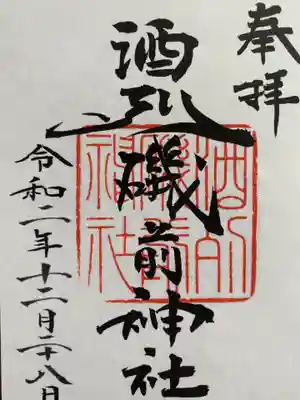 奉拝
酒列磯前神社
令和二年十二月二十八日
酒列磯前神社